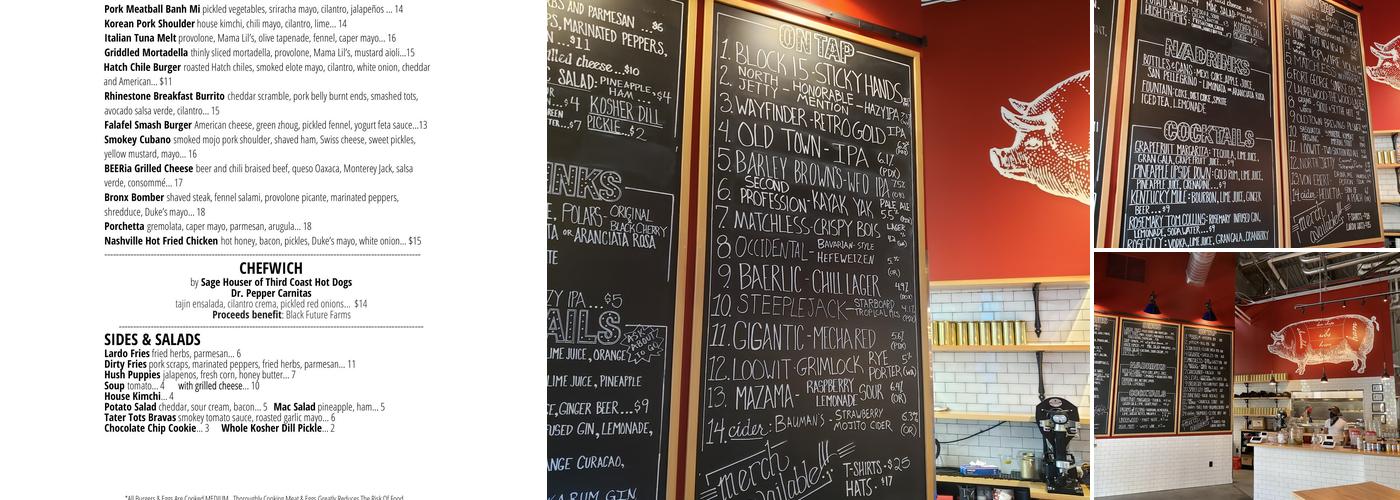 Pork Meatball Banh Mi pickled vegetables, sriracha mayo, cilantro, jalapeños ... 14
Korean Pork Shoulder house kimchi, chili mayo, cilantro, lime... 14
Italian Tuna Melt provolone, Mama Lil's, olive tapenade, fennel, caper mayo... 16
Griddled Mortadella thinly sliced mortadella, provolone, Mama Lil's, mustard aioli...15
Hatch Chile Burger roasted Hatch chiles, smoked elote mayo, cilantro, white onion, cheddar
and American... $11
Rhinestone Breakfast Burrito cheddar scramble, pork belly burnt ends, smashed tots,
avocado salsa verde, cilantro... 15
Falafel Smash Burger American cheese, green zhoug, pickled fennel, yogurt feta sauce...13
Smokey Cubano smoked mojo pork shoulder, shaved ham, Swiss cheese, sweet pickles,
yellow mustard, mayo... 16
BEERia Grilled Cheese beer and chili braised beef, queso Oaxaca, Monterey Jack, salsa
verde, consommé... 17
Bronx Bomber shaved steak, fennel salami, provolone picante, marinated peppers,
shredduce, Duke's mayo... 18
Porchetta gremolata, caper mayo, parmesan, arugula... 18
Nashville Hot Fried Chicken hot honey, bacon, pickles, Duke's mayo, white onion... $15
CHEFWICH
by Sage Houser of Third Coast Hot Dogs
Dr. Pepper Carnitas
tajin ensalada, cilantro crema, pickled red onions... $14
Proceeds benefit: Black Future Farms
SIDES & SALADS
Lardo Fries fried herbs, parmesan... 6
Dirty Fries pork scraps, marinated peppers, fried herbs, parmesan... 11
Hush Puppies jalapenos, fresh corn, honey butter... 7
Soup tomato... 4 with grilled cheese... 10
House Kimchi... 4
Potato Salad cheddar, sour cream, bacon... 5 Mac Salad pineapple, ham... 5
Tater Tots Bravas smokey tomato sauce, roasted garlic mayo... 6
Chocolate Chip Cookie... 3 Whole Kosher Dill Pickle... 2
*All Burgers & Eggs Are Cooked MEDIUM. Thoroughly Cooking Meat & Eggs Greatly Reduces The Risk Of Food
BS AND PARMESAN ... $6
MARINATED PEPPERS,
...$11
cheese...$10
SALAD: PINEAPPLE,
HAM ... $4
$4 KOSHER DILL
...$7 PICKLE...$2
POLARS - ORIGINAL
BLACK CHERRY
OR ARANCIATA ROSA
IPA...$5
ASK ABOUT TO GO!
LIME JUICE, ORANGE
LIME JUICE, PINEAPPLE
GINGER BEER...$9
GIN, LEMONADE,
ORANGE CURACAO,
RUM, GIN,
ON TAP
1. BLOCK 15 - STICKY HANDS
2. NORTH JETTY - HONORABLE MENTION - HAZY IPA
3. WAYFINDER - RETRO GOLD IPA
4. OLD TOWN - IPA 6.1% (PDX)
5. BARLEY BROWN'S - WFO IPA 7.5%
6. SECOND PROFESSION - KAYAK YAK PALE ALE 5.5%
7. MATCHLESS - CRISPY BOIS LAGER
8. OCCIDENTAL - BAVARIAN-STYLE HEFEWEIZEN 5% (OR)
9. BAERLIC - CHILL LAGER 4.9%
10. STEEPLEJACK - STARBOARD TROPICAL
11. GIGANTIC - MECHA RED 5.6% (PDX)
12. LOOWIT - GRIMLOCK RYE PORTER
13. MAZAMA - RASPBERRY LEMONADE SOUR 6.9% (OR)
14. cider: BAUMAN'S - STRAWBERRY MOJITO CIDER 6.3% (OR)
merch available!! T-SHIRTS - $25
HATS - $17
N/A DRINKS
BOTTLES & CANS - MEXI COKE, APPLE JUICE,
SAN PELLEGRINO - LIMONATA OR ARANCIATA ROSA
FOUNTAIN: COKE, DIET COKE, SPRITE
ICED TEA, LEMONADE
COCKTAILS
GRAPEFRUIT MARGARITA: TEQUILA, LIME JUICE,
GRAN GALA, GRAPEFRUIT JUICE...$9
PINEAPPLE UPSIDE DOWN: GOLD RUM, LIME JUICE,
PINEAPPLE JUICE, GRENADINE...$9
KENTUCKY MULE: BOURBON, LIME JUICE, GINGER
BEER...$9
ROSEMARY TOM COLLINS: ROSEMARY INFUSED GIN,
LEMONADE, SODA WATER...$9
ROSE CITY: VODKA, LIME JUICE, GRAN GALA, CRANBERRY
merch available!